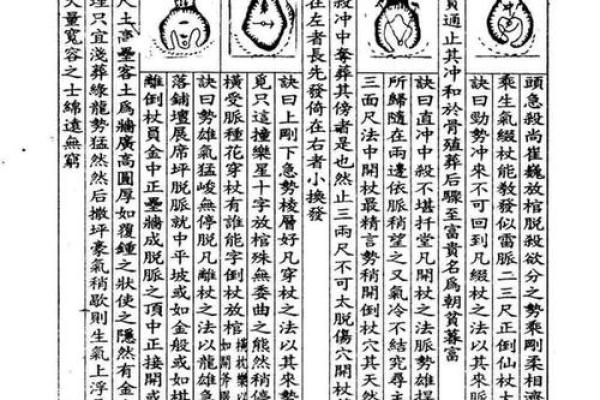 頭急殺尚崔巍放棺脫殺欲分之勢乘剛柔相濟
乘生氣綴杖能教發似雷脈二三尺正倒仙杖大
訣曰勁勢冲來不可回到凡綴杖之法以其來脈
員通止其冲和於骨殖葬后驟至富貴名爲朝貧暮富
訣曰直冲中殺不堪扦堂凡開杖之法脈勢雄
所歸隨在兩邊依脈稍望之又氣冷不結究尋主
三面尺法中開杖最精言勢稍開倒杖穴其天然
殺冲中奪葬其傍者是也然止三兩尺不可太脫傷穴開杖
在左者長先發倚在右者小換發
訣曰上剛下急勢棱層好凡穿杖之法以其來勢
覓只這撞樂星十字放棺殊無委曲之態然稍
橫受脈種花穿杖有誰能字倒杖放棺橫枕樂以
如開斧
訣曰勢雄氣猛峻無停脫凡離杖之法以龍雄急
落鋪壇展席坪脫脈就中平坡或如金般或如棋
離倒杖員金中正壘牆成脫脈之頂中正接開或
尺土高壘客土爲牆廣高圓厚如覆鍾之狀使之隱然有金
理只宜淺葬緣龍勢猛然然后撒坪豪氣稍歇則生氣上浮
大量寬容之士綿遠無窮